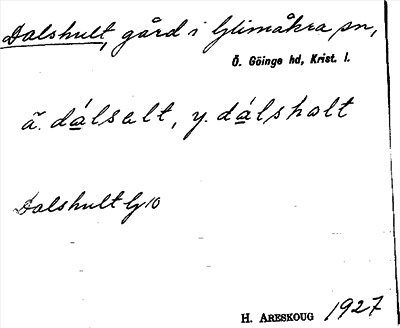 Dalshult, gård i Glimåkra sn,
Ö. Göinge hd, Krist. l.
ä. dálsalt, y. dálshalt
Dalshult Gj 10
H. ARESKOUG 1927